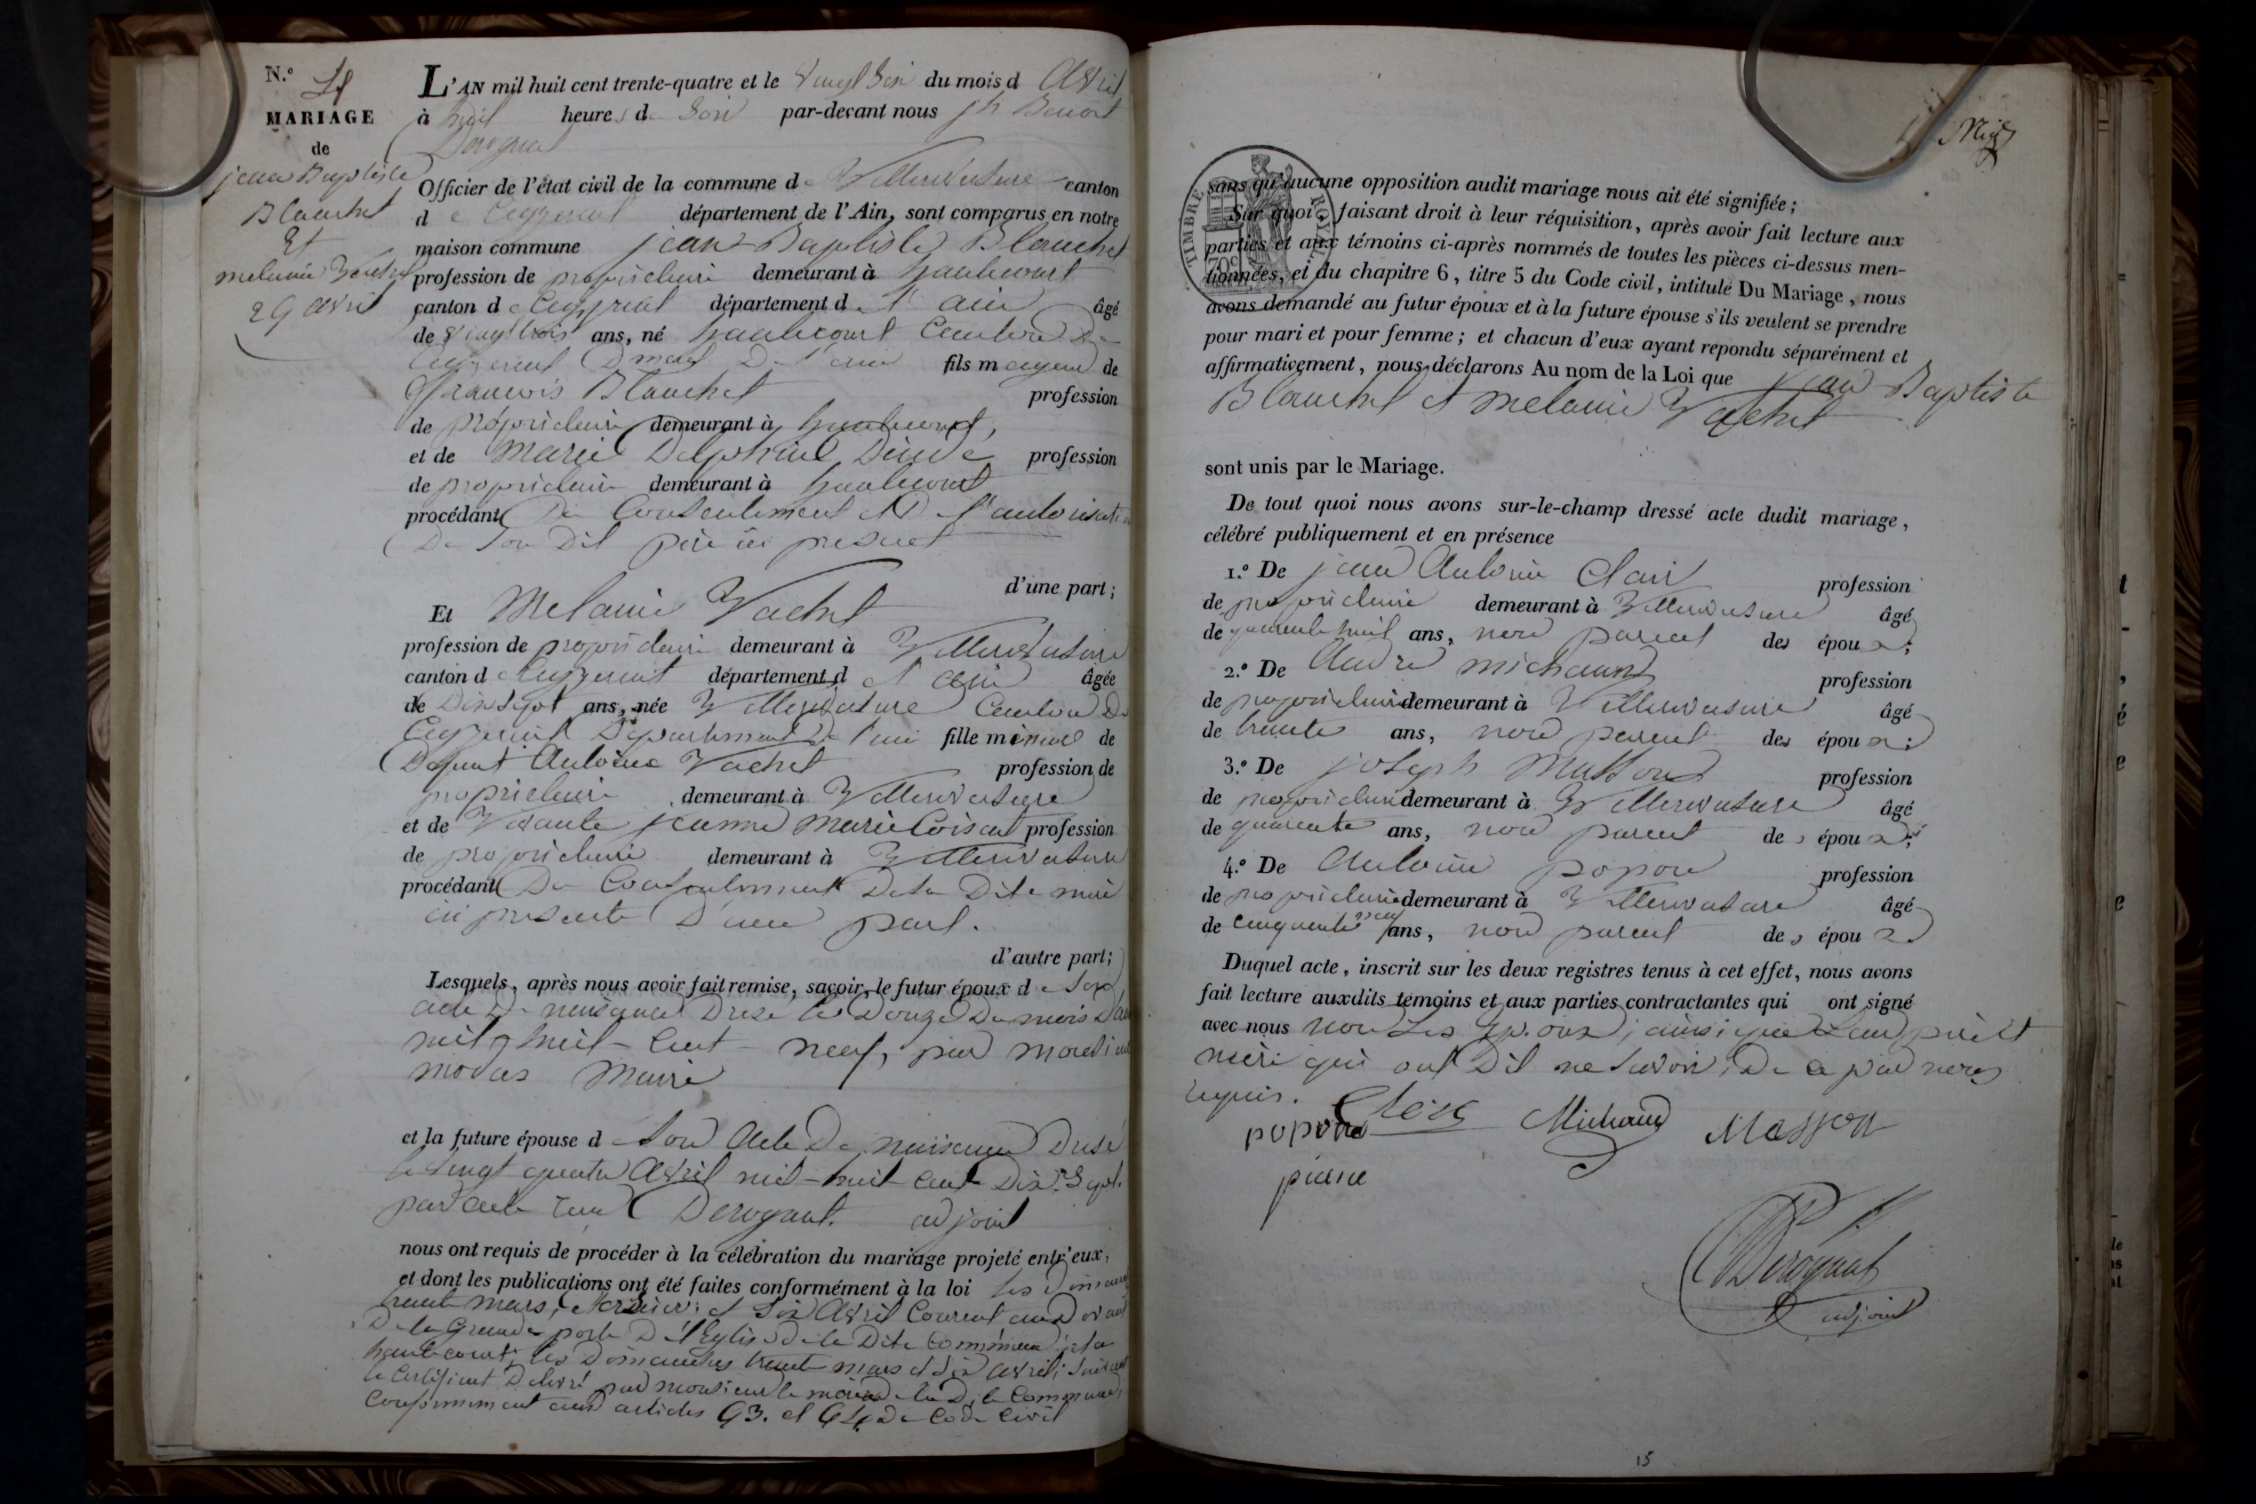 N.° 4
MARIAGE
de
jean Baptiste
Blanchet
Et
melanie Vachet
29 avril
L'AN mil huit cent trente-quatre et le vingt six du mois d avril
à huit heures du soir par-devant nous jh Benoit
Derognat
Officier de l'état civil de la commune de Villereversure canton
de Ceyzeriat département de l'Ain, sont comparus en notre
maison commune jean Baptiste Blanchet
profession de propriétaire demeurant à hautecourt
canton de Ceyzeriat département de l'ain âgé
de vingt trois ans, né hautecourt Canton De
Ceyzeriat De l'ain fils majeur de
francois Blanchet profession
de propriétaire demeurant à hautecourt,
et de Marie Delphine profession
de propriétaire demeurant à hautecourt
procédant Du Consentement et De l'autorisation
De Son Dit père ici present
d'une part;
Et Melanie Vachet
profession de propriétaire demeurant à Villereversure
canton de Ceyzeriat département de l'ain âgée
de Dix Sept ans, née Villereversure Canton De
Ceyzeriat Département De l'ain fille mineure de
Defunt Antoine Vachet profession de
propriétaire demeurant à Villereversure
et de Vivante jeanne Marie profession
de propriétaire demeurant à Villereversure
procédant Du Consentement De Sa Dite mère
ici presente D'une part.
d'autre part;
Lesquels, après nous avoir fait remise, savoir, le futur époux de Son
acte De naissance Dresé le Douze Du mois
mil huit-Cent-neuf, par monsieur
Maire
et la future épouse de Son Acte De naissance Dresé
le vingt quatre Avril mil-huit cent Dix-Sept.
par Derognat. adjoint
nous ont requis de procéder à la célébration du mariage projeté entr'eux,
et dont les publications ont été faites conformément à la loi les Dimanches
trente mars, dernier et Six Avril Courent au Devant
De la Grande porte De l'Eglise De la Dite Commune; et a
hautecourt les Dimanches trente mars et Six avril; Suivant
le Certificat Delivré par monsieur le maire De la Dite Commune
Conformément aux articles 63. et 64 Du Code Civil
sans qu'aucune opposition audit mariage nous ait été signifiée;
Sur quoi, faisant droit à leur réquisition, après avoir fait lecture aux
parties et aux témoins ci-après nommés de toutes les pièces ci-dessus men-
tionnées, et du chapitre 6, titre 5 du Code civil, intitulé Du Mariage, nous
avons demandé au futur époux et à la future épouse s'ils veulent se prendre
pour mari et pour femme; et chacun d'eux ayant repondu séparément et
affirmativement, nous déclarons Au nom de la Loi que jean Baptiste
Blanchet et Melanie Vachet
sont unis par le Mariage.
De tout quoi nous avons sur-le-champ dressé acte dudit mariage,
célébré publiquement et en présence
1.° De jean Antoine Clair profession
de propriétaire demeurant à Villereversure âgé
de quarente huit ans, non parent des époux;
2.° De André michaud profession
de propriétaire demeurant à Villereversure âgé
de trente ans, non parent des époux;
3.° De joseph Masson profession
de propriétaire demeurant à Villereversure âgé
de quarente ans, non parent des époux;
4.° De Antoine popon profession
de propriétaire demeurant à Villereversure âgé
de Cinquente neuf ans, non parent des époux
Duquel acte, inscrit sur les deux registres tenus à cet effet, nous avons
fait lecture auxdits témoins et aux parties contractantes qui ont signé
avec nous non les Epoux, ainsi que leur père et
mère qui ont Dit ne Savoir, De ce par nous
requis.
Michaud Masson
popon
Derognat
adjoint
TIMBRE ROYAL
70c
15